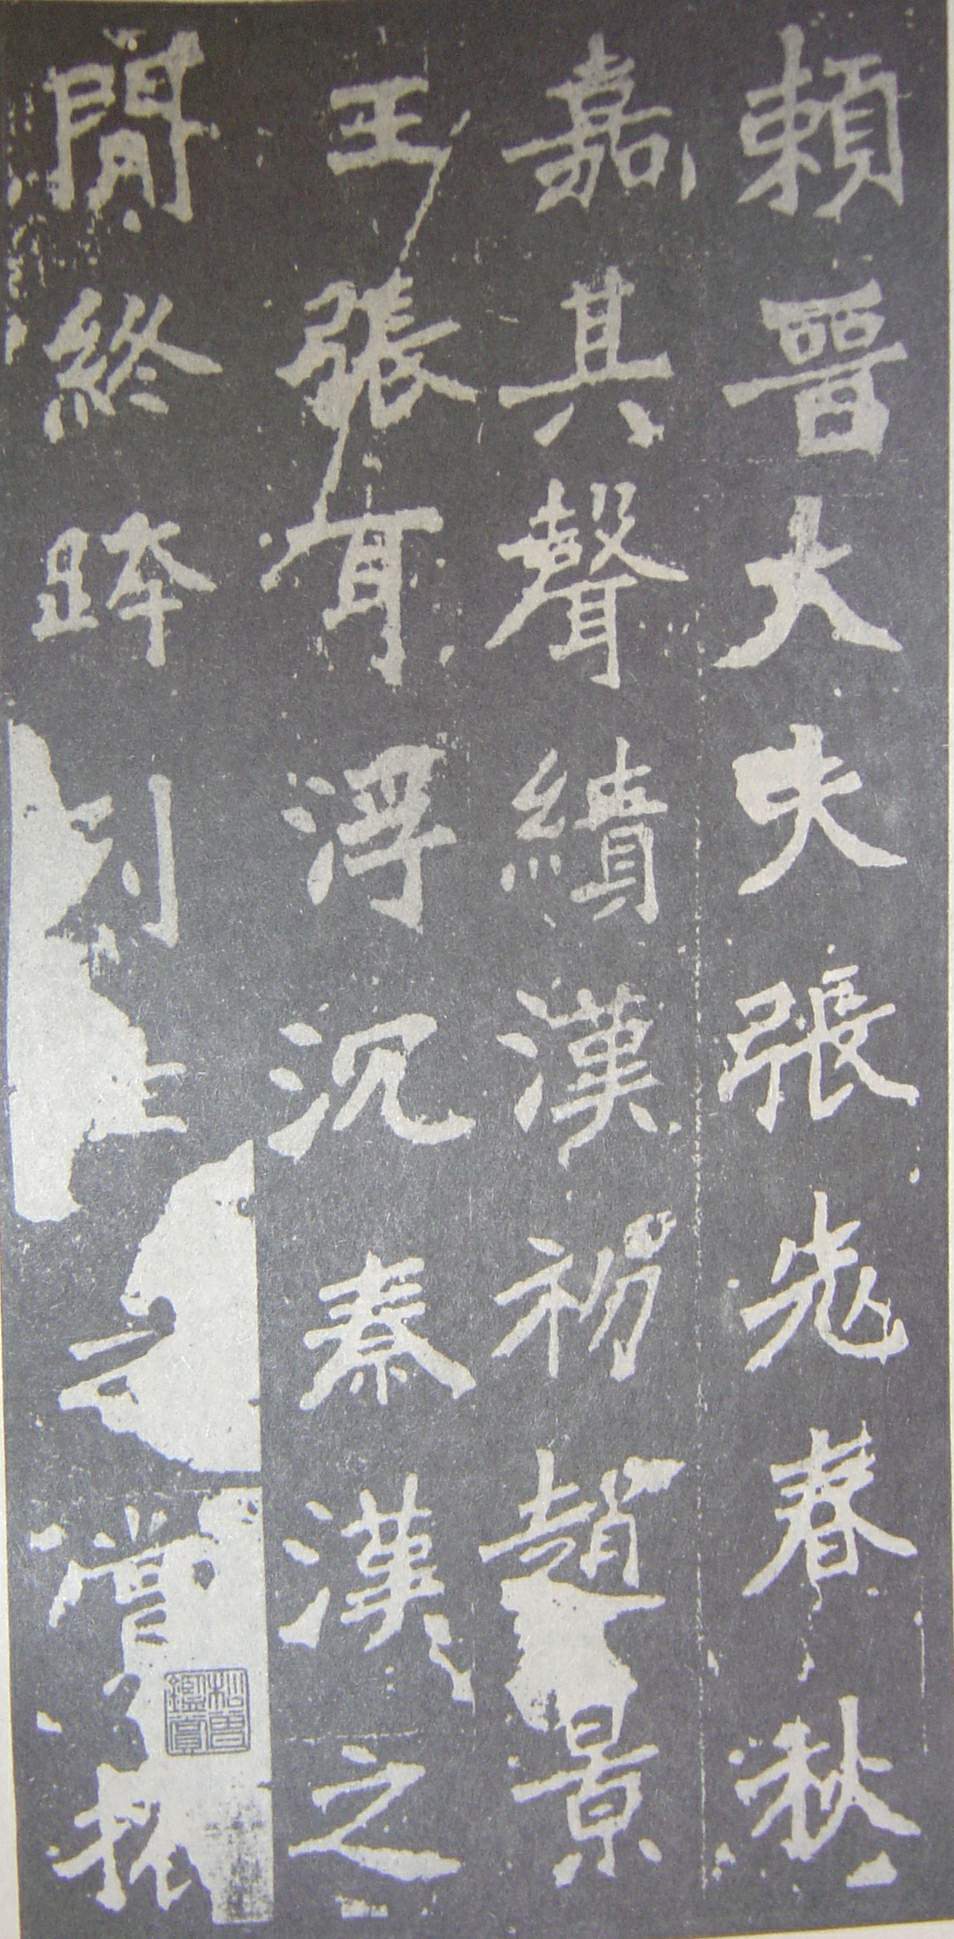 賴晉大夫張老春秋
嘉其聲績漢初趙景
王張耳浮沉秦漢之
間終跨列土之賞